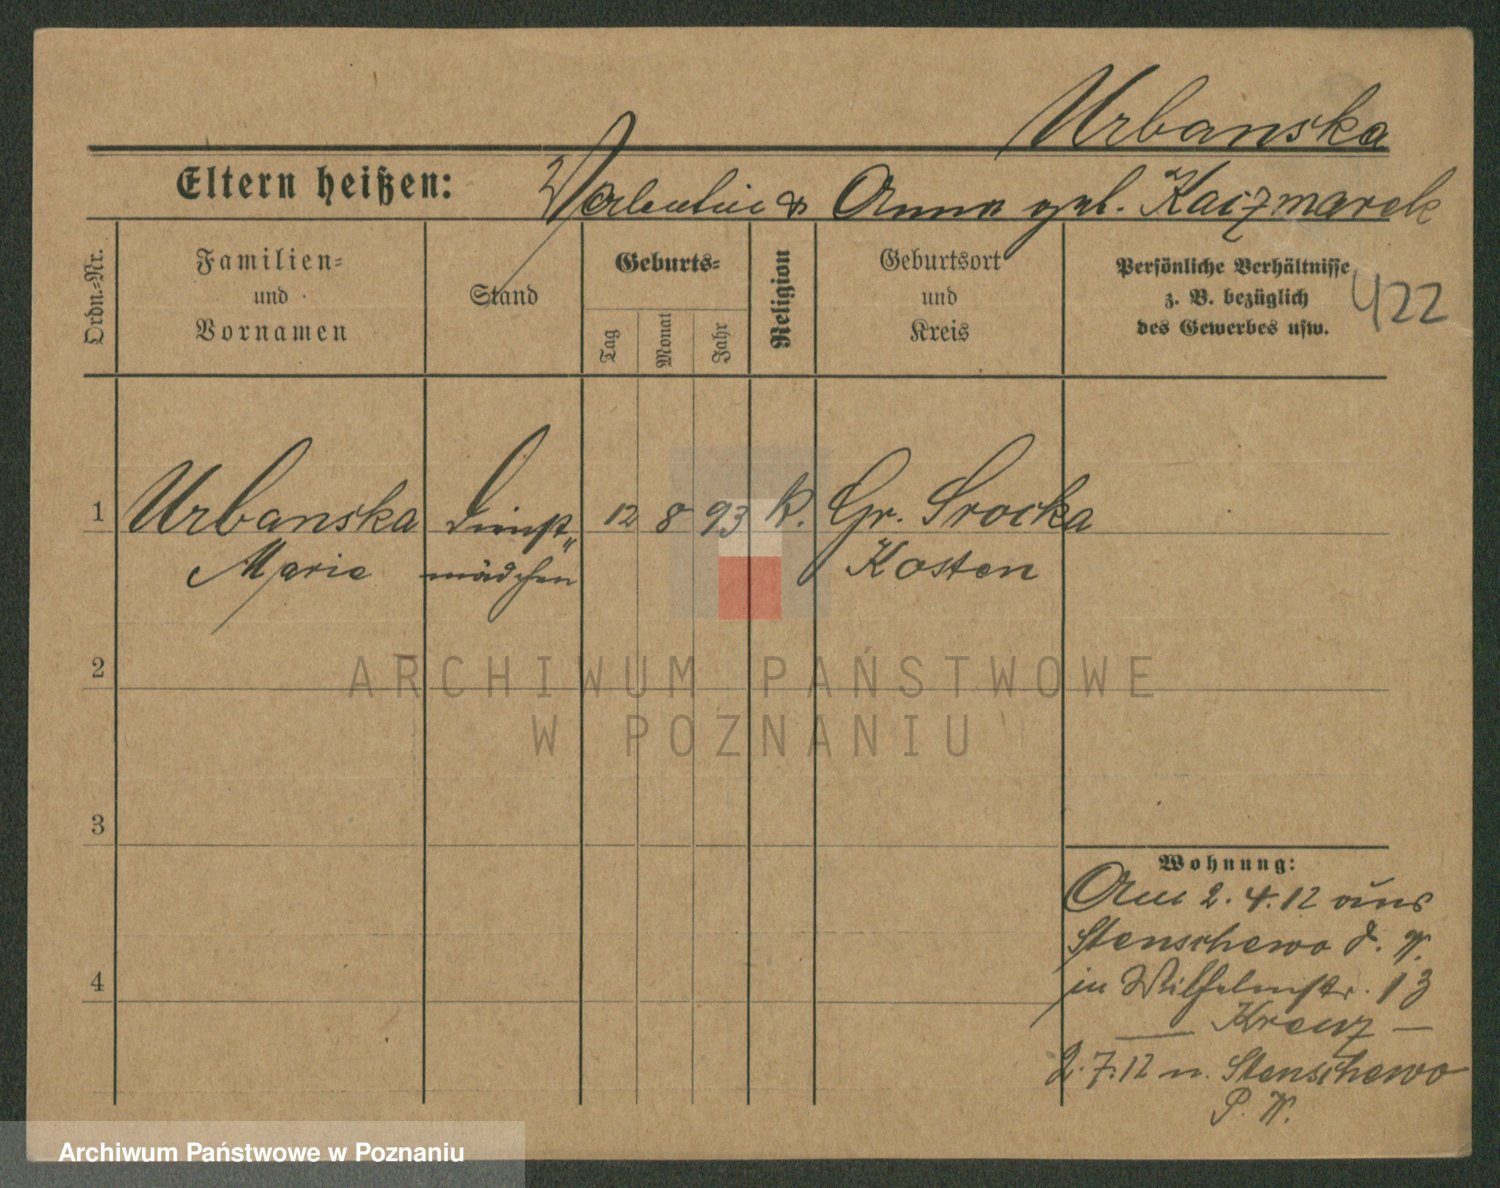 Urbanska
Eltern heißen: Valentin & Anna geb. Kaczmarek
Ordn.-Nr.
Familien-
und
Vornamen
Stand
Geburts-
Tag
Monat
Jahr
Religion
Geburtsort
und
Kreis
Persönliche Verhältnisse
z. B. bezüglich
des Gewerbes usw.
422
1 Urbanska Dienst„ 12 8 93 k. Gr. Srocka
Marie mädchen Kosten
2
3
4
Wohnung:
Am 2.4.12 aus
Stenschewo P. W.
in Wilhelmstr. 13
— Kreuz —
2.7.12 n. Stenschewo
P. W.
ARCHIWUM PAŃSTWOWE
W POZNANIU
Archiwum Państwowe w Poznaniu